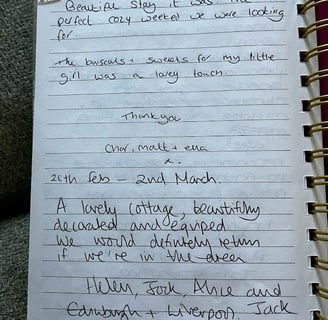 Beautiful stay it was the
perfect cozy weekend we were looking
for.
The biuscuits + sweets for my little
girl was a lovey touch.
Thank you
Char, matt + ella
x.
28th Feb - 2nd March.
A lovely cottage, beautifully
decorated and equiped
We would definitely return
if we're in the area
Helen, Jack, Alice and
Edinburgh + Liverpool. Jack